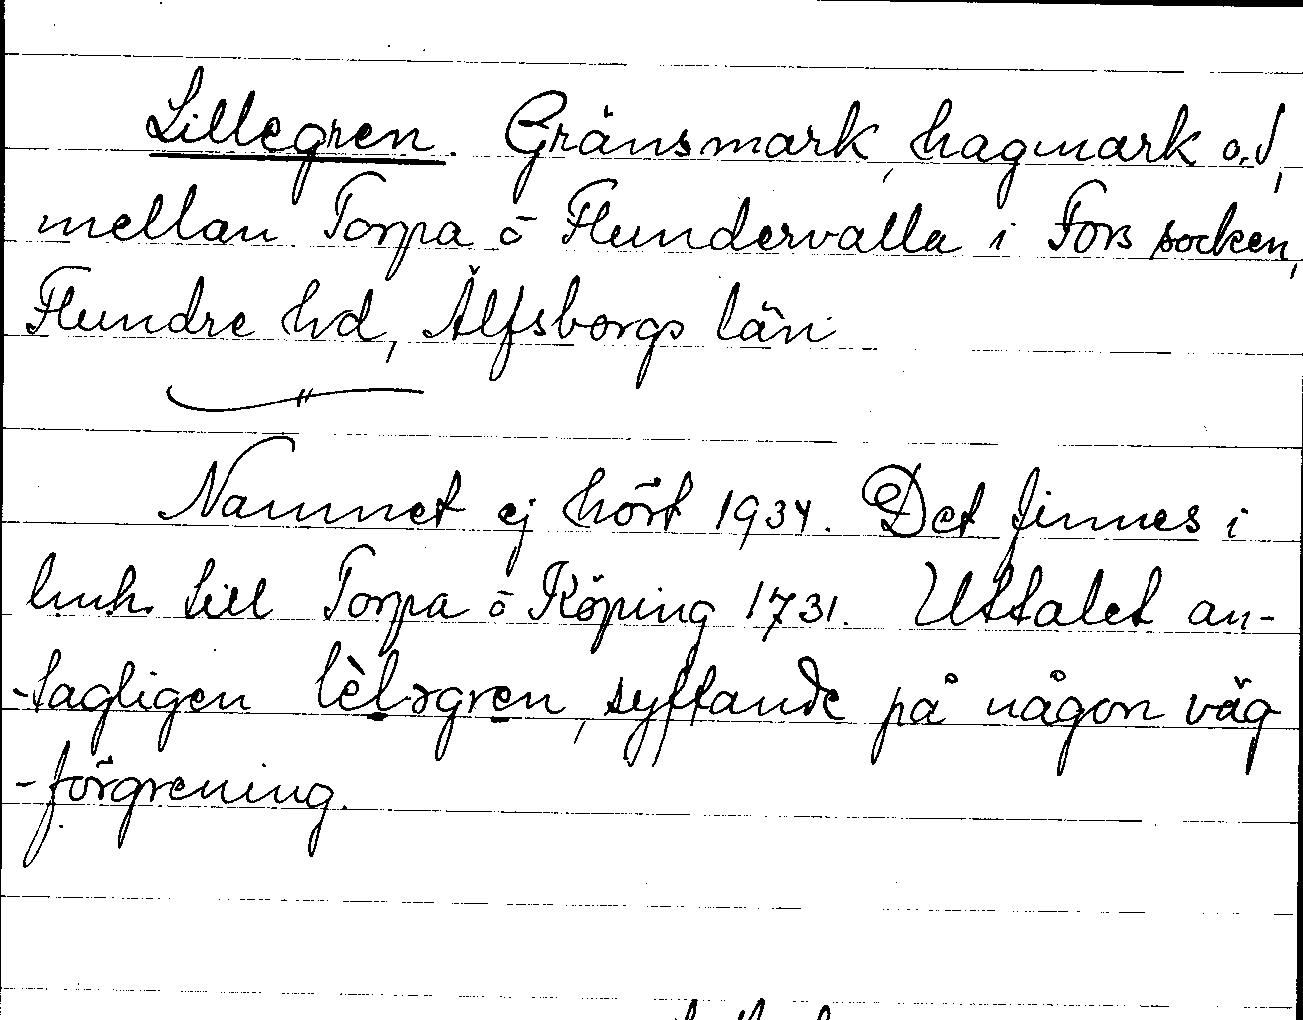 Lillegren. Gränsmark, hagmark o.d,
mellan Torpa o Flundervalla i Fors socken,
Flundre hd, Älfsborgs län
Namnet ej hört 1934. Det finnes i
luh. till Torpa o Köping 1731. Uttalet an-
-tagligen lèləgren, syftande på någon väg
-förgrening.